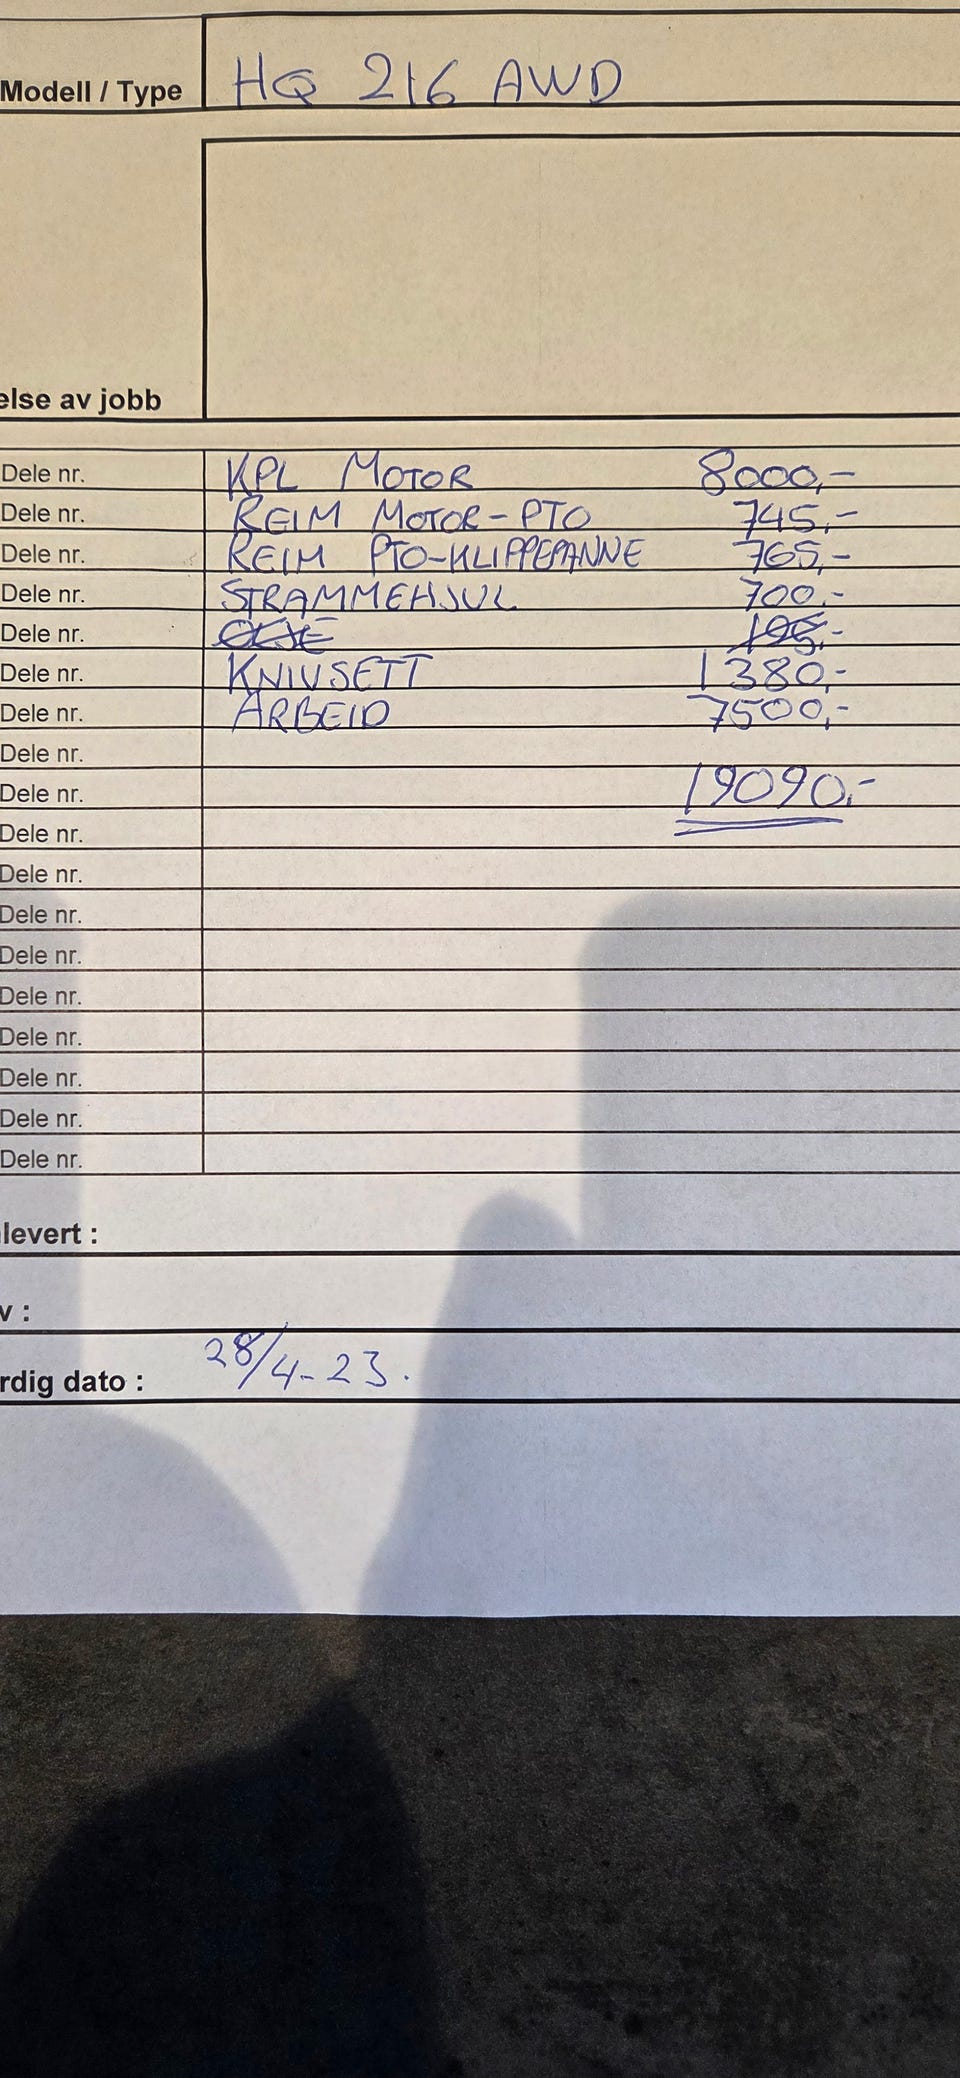 Modell / Type HQ 216 AWD
else av jobb
Dele nr. KPL MOTOR 8000,-
Dele nr. REIM MOTOR-PTO 745,-
Dele nr. REIM PTO-KLIPPEPANNE 765,-
Dele nr. STRAMMEHJUL 700,-
Dele nr. OLJE 195,-
Dele nr. KNIVSETT 1380,-
Dele nr. ARBEID 7500,-
Dele nr.
Dele nr. 19090,-
Dele nr.
Dele nr.
Dele nr.
Dele nr.
Dele nr.
Dele nr.
Dele nr.
Dele nr.
Dele nr.
levert :
v :
rdig dato : 28/4-23.